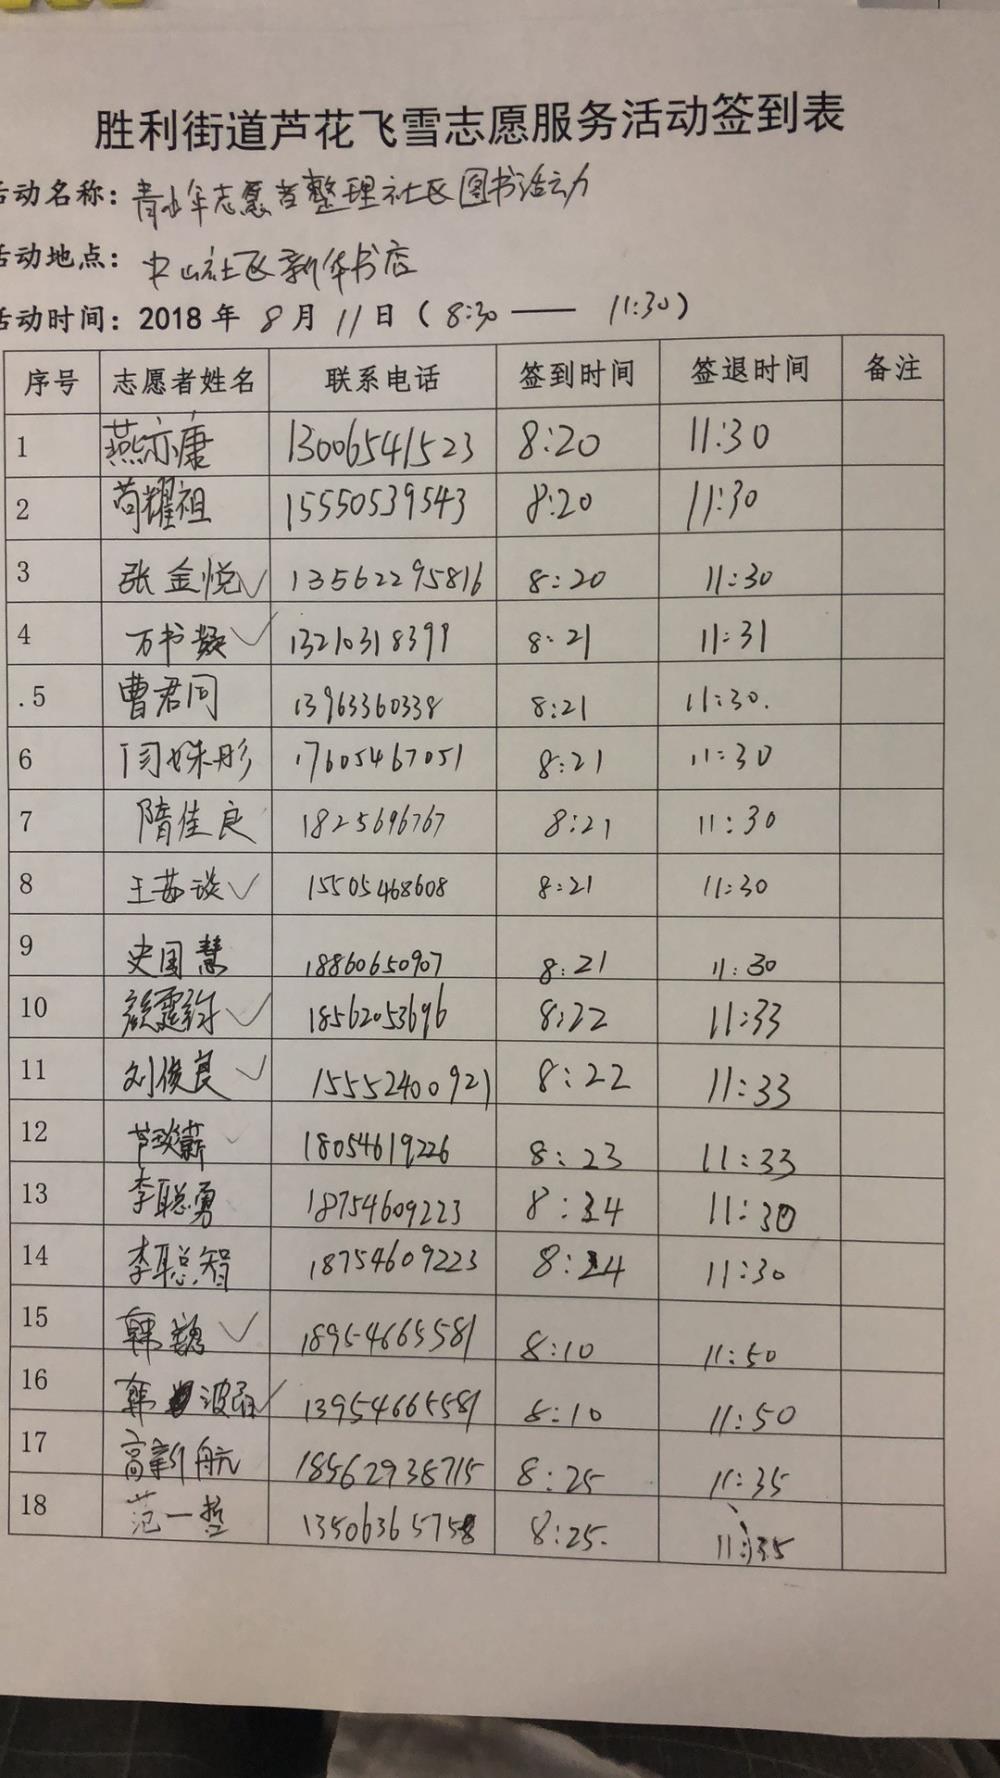 胜利街道芦花飞雪志愿服务活动签到表
活动名称：青少年志愿者整理社区图书活动
活动地点：中山社区新华书店
活动时间：2018 年 8 月 11 日（8:30 —— 11:30）
序号 志愿者姓名 联系电话 签到时间 签退时间 备注
1 燕亦康 13006541523 8:20 11:30
2 苟耀祖 15550539543 8:20 11:30
3 张金悦✓ 13562295816 8:20 11:30
4 万书 ✓ 13210318399 8:21 11:31
.5 曹君同 13963360338 8:21 11:30.
6 闫姝彤 17605467051 8:21 11:30
7 隋佳良 1825696767 8:21 11:30
8 王 ✓ 15505468608 8:21 11:30
9 史国慧 18860650907 8:21 11:30
10 颜霆 ✓ 18562053696 8:22 11:33
11 刘俊良✓ 15552400921 8:22 11:33
12 芦 ✓ 18054619226 8:23 11:33
13 李聪勇 18754609223 8:24 11:30
14 李聪智 18754609223 8:24 11:30
15 韩 ✓ 18954665581 8:10 11:50
16 韩 波 ✓ 13954665581 8:10 11:50
17 高新航 18562938715 8:25 11:35
18 范一哲 13506365758 8:25. 11:35